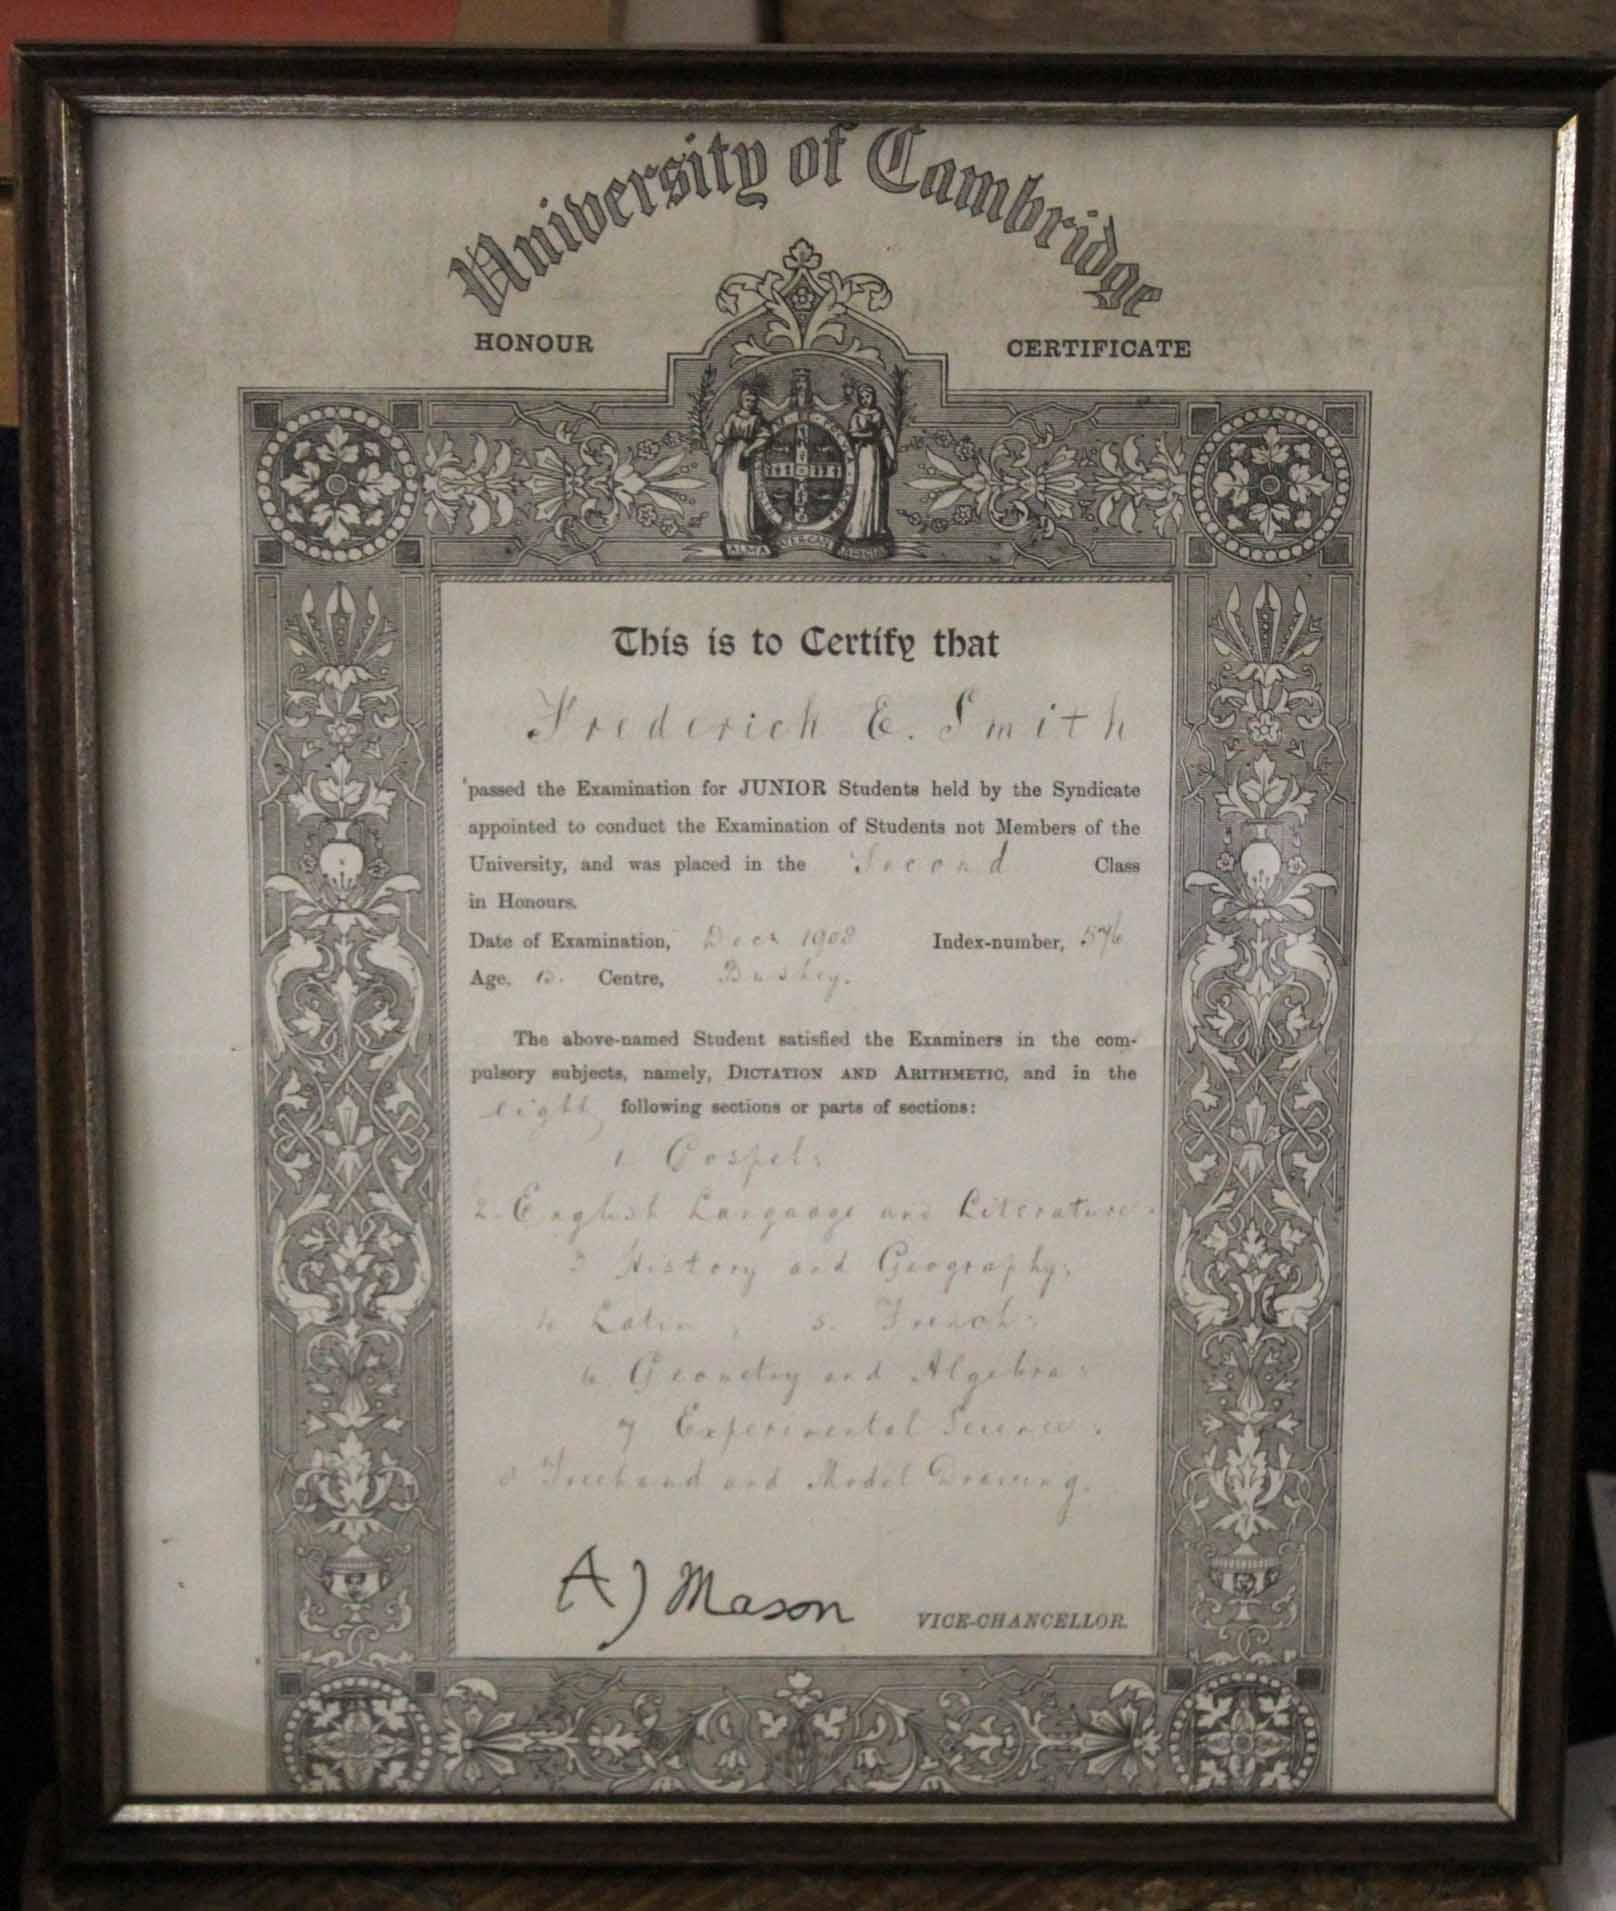 University of Cambridge
HONOUR CERTIFICATE
ALMA MATER CANTABRIGIA
This is to Certify that
Frederich E. Smith
passed the Examination for JUNIOR Students held by the Syndicate
appointed to conduct the Examination of Students not Members of the
University, and was placed in the Second Class
in Honours.
Date of Examination, Decr 1908 Index-number, 576
Age, Centre, Bushey.
The above-named Student satisfied the Examiners in the com-
pulsory subjects, namely, DICTATION AND ARITHMETIC, and in the
eight following sections or parts of sections:
1. Gospel;
2. English Language and Literature;
3 History and Geography;
4. Latin; 5. French;
6. Geometry and Algebra;
7 Experimental Science;
8 Freehand and Model Drawing.
A J Mason VICE-CHANCELLOR.